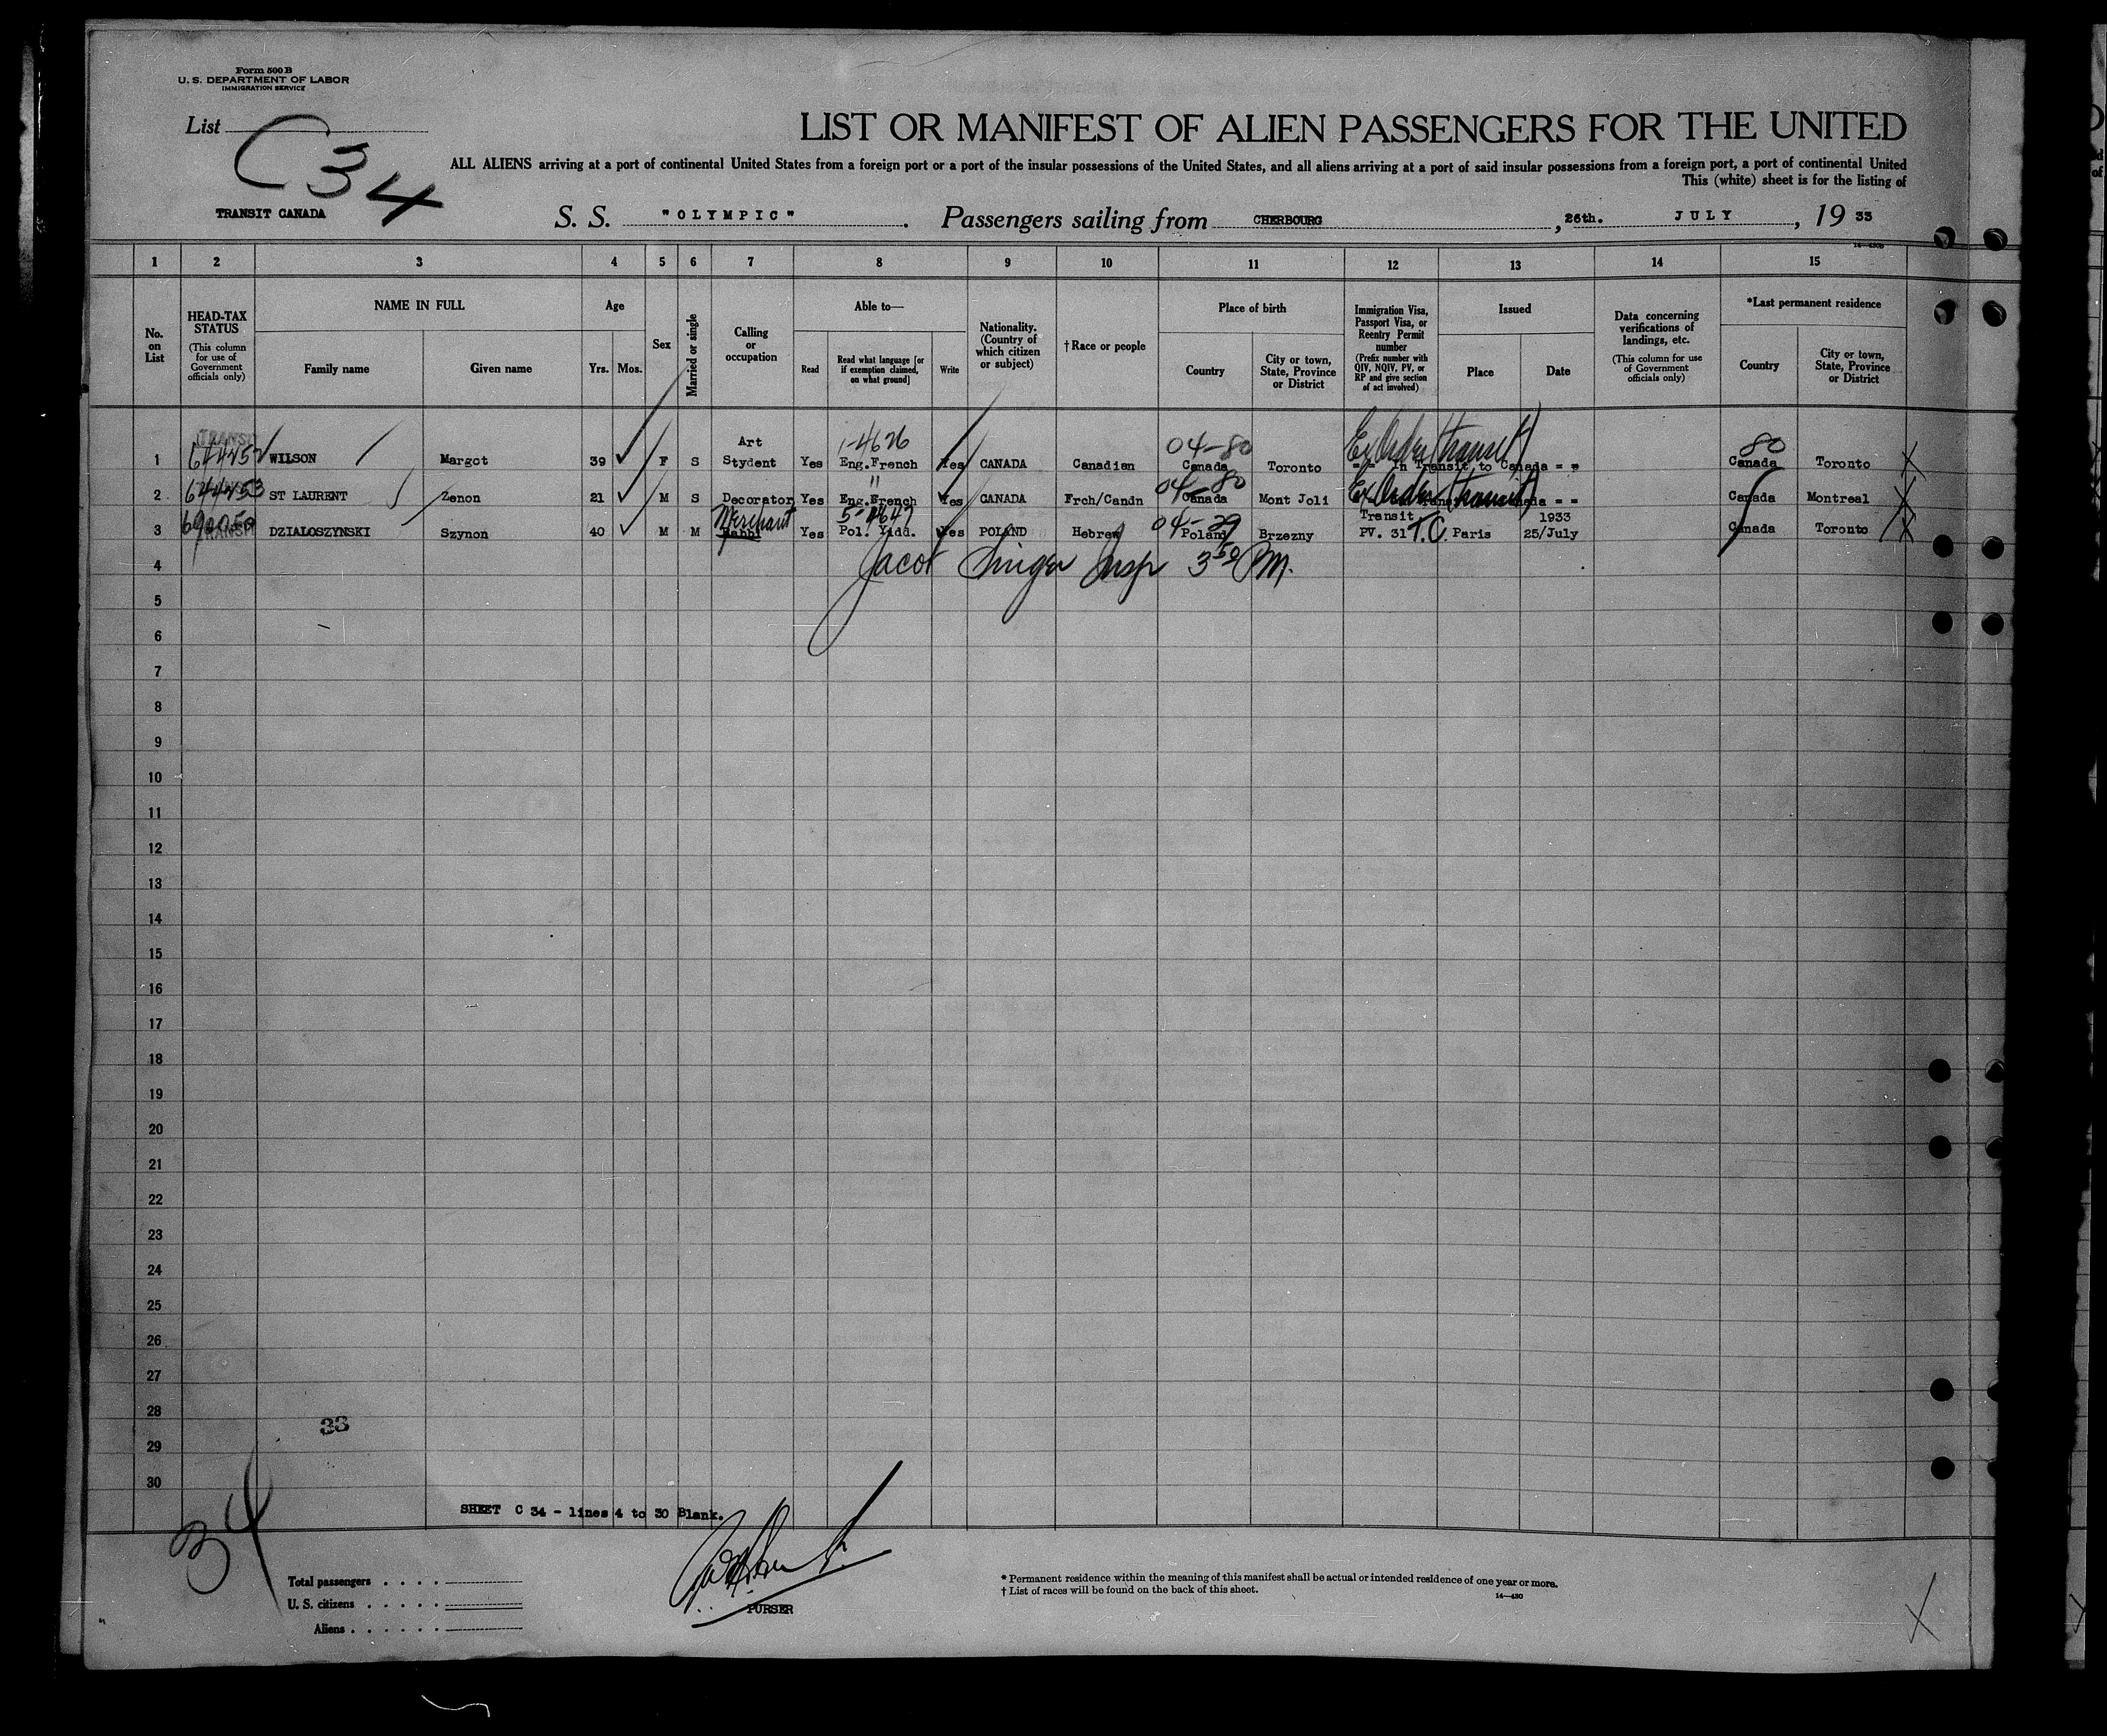 Form 500 B
U. S. DEPARTMENT OF LABOR
IMMIGRATION SERVICE
List C 34
TRANSIT CANADA
LIST OR MANIFEST OF ALIEN PASSENGERS FOR THE UNITED
ALL ALIENS arriving at a port of continental United States from a foreign port or a port of the insular possessions of the United States, and all aliens arriving at a port of said insular possessions from a foreign port, a port of continental United
This (white) sheet is for the listing of
S. S. "OLYMPIC". Passengers sailing from CHERBOURG, 26th. JULY, 19 33
1 2 3 4 5 6 7 8 9 10 11 12 13 14 15
No. on List
HEAD-TAX STATUS
(This column for use of Government officials only)
NAME IN FULL
Family name
Given name
Age
Yrs.
Mos.
Sex
Married or single
Calling or occupation
Able to—
Read
Read what language [or if exemption claimed, on what ground]
Write
Nationality. (Country of which citizen or subject)
† Race or people
Place of birth
Country
City or town, State, Province or District
Immigration Visa, Passport Visa, or Reentry Permit number
(Prefix number with QIV, NQIV, PV, or RP and give section of act involved)
Issued
Place
Date
Data concerning verifications of landings, etc.
(This column for use of Government officials only)
*Last permanent residence
Country
City or town, State, Province or District
Art 1-4626 04-80 Ex Order (transit) 80
1 WILSON Margot 39 F S Stydent Yes Eng.French Yes CANADA Canadian Canada Toronto = = In Transit to Canada = = Canada Toronto
" 04-80 Ex Order (transit)
2 644453 ST LAURENT Zenon 21 M S Decorator Yes Eng.French Yes CANADA Frch/Candn Canada Mont Joli = = Canada Montreal
Merchant 04-29 Transit 1933
3 DZIALOSZYNSKI Szynon 40 M M Rabbi Yes Pol. Yidd. Yes POLAND Hebrew Poland Brzezny PV. 31 T.C. Paris 25/July Canada Toronto
4 Jacob Singer Insp 3 50 PM.
5
6
7
8
9
10
11
12
13
14
15
16
17
18
19
20
21
22
23
24
25
26
27
28
33
29
30
SHEET C 34 - lines 4 to 30 Blank.
34
Total passengers
U. S. citizens
Aliens
PURSER
* Permanent residence within the meaning of this manifest shall be actual or intended residence of one year or more.
† List of races will be found on the back of this sheet.
14—430